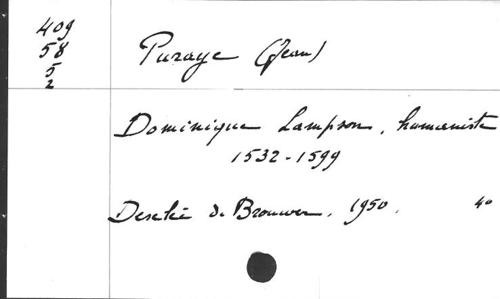 409
58
5
2
Puraye (Jean)
Dominique Lampson, humaniste
1532-1599
Desclée de Brouwer, 1950. 4°